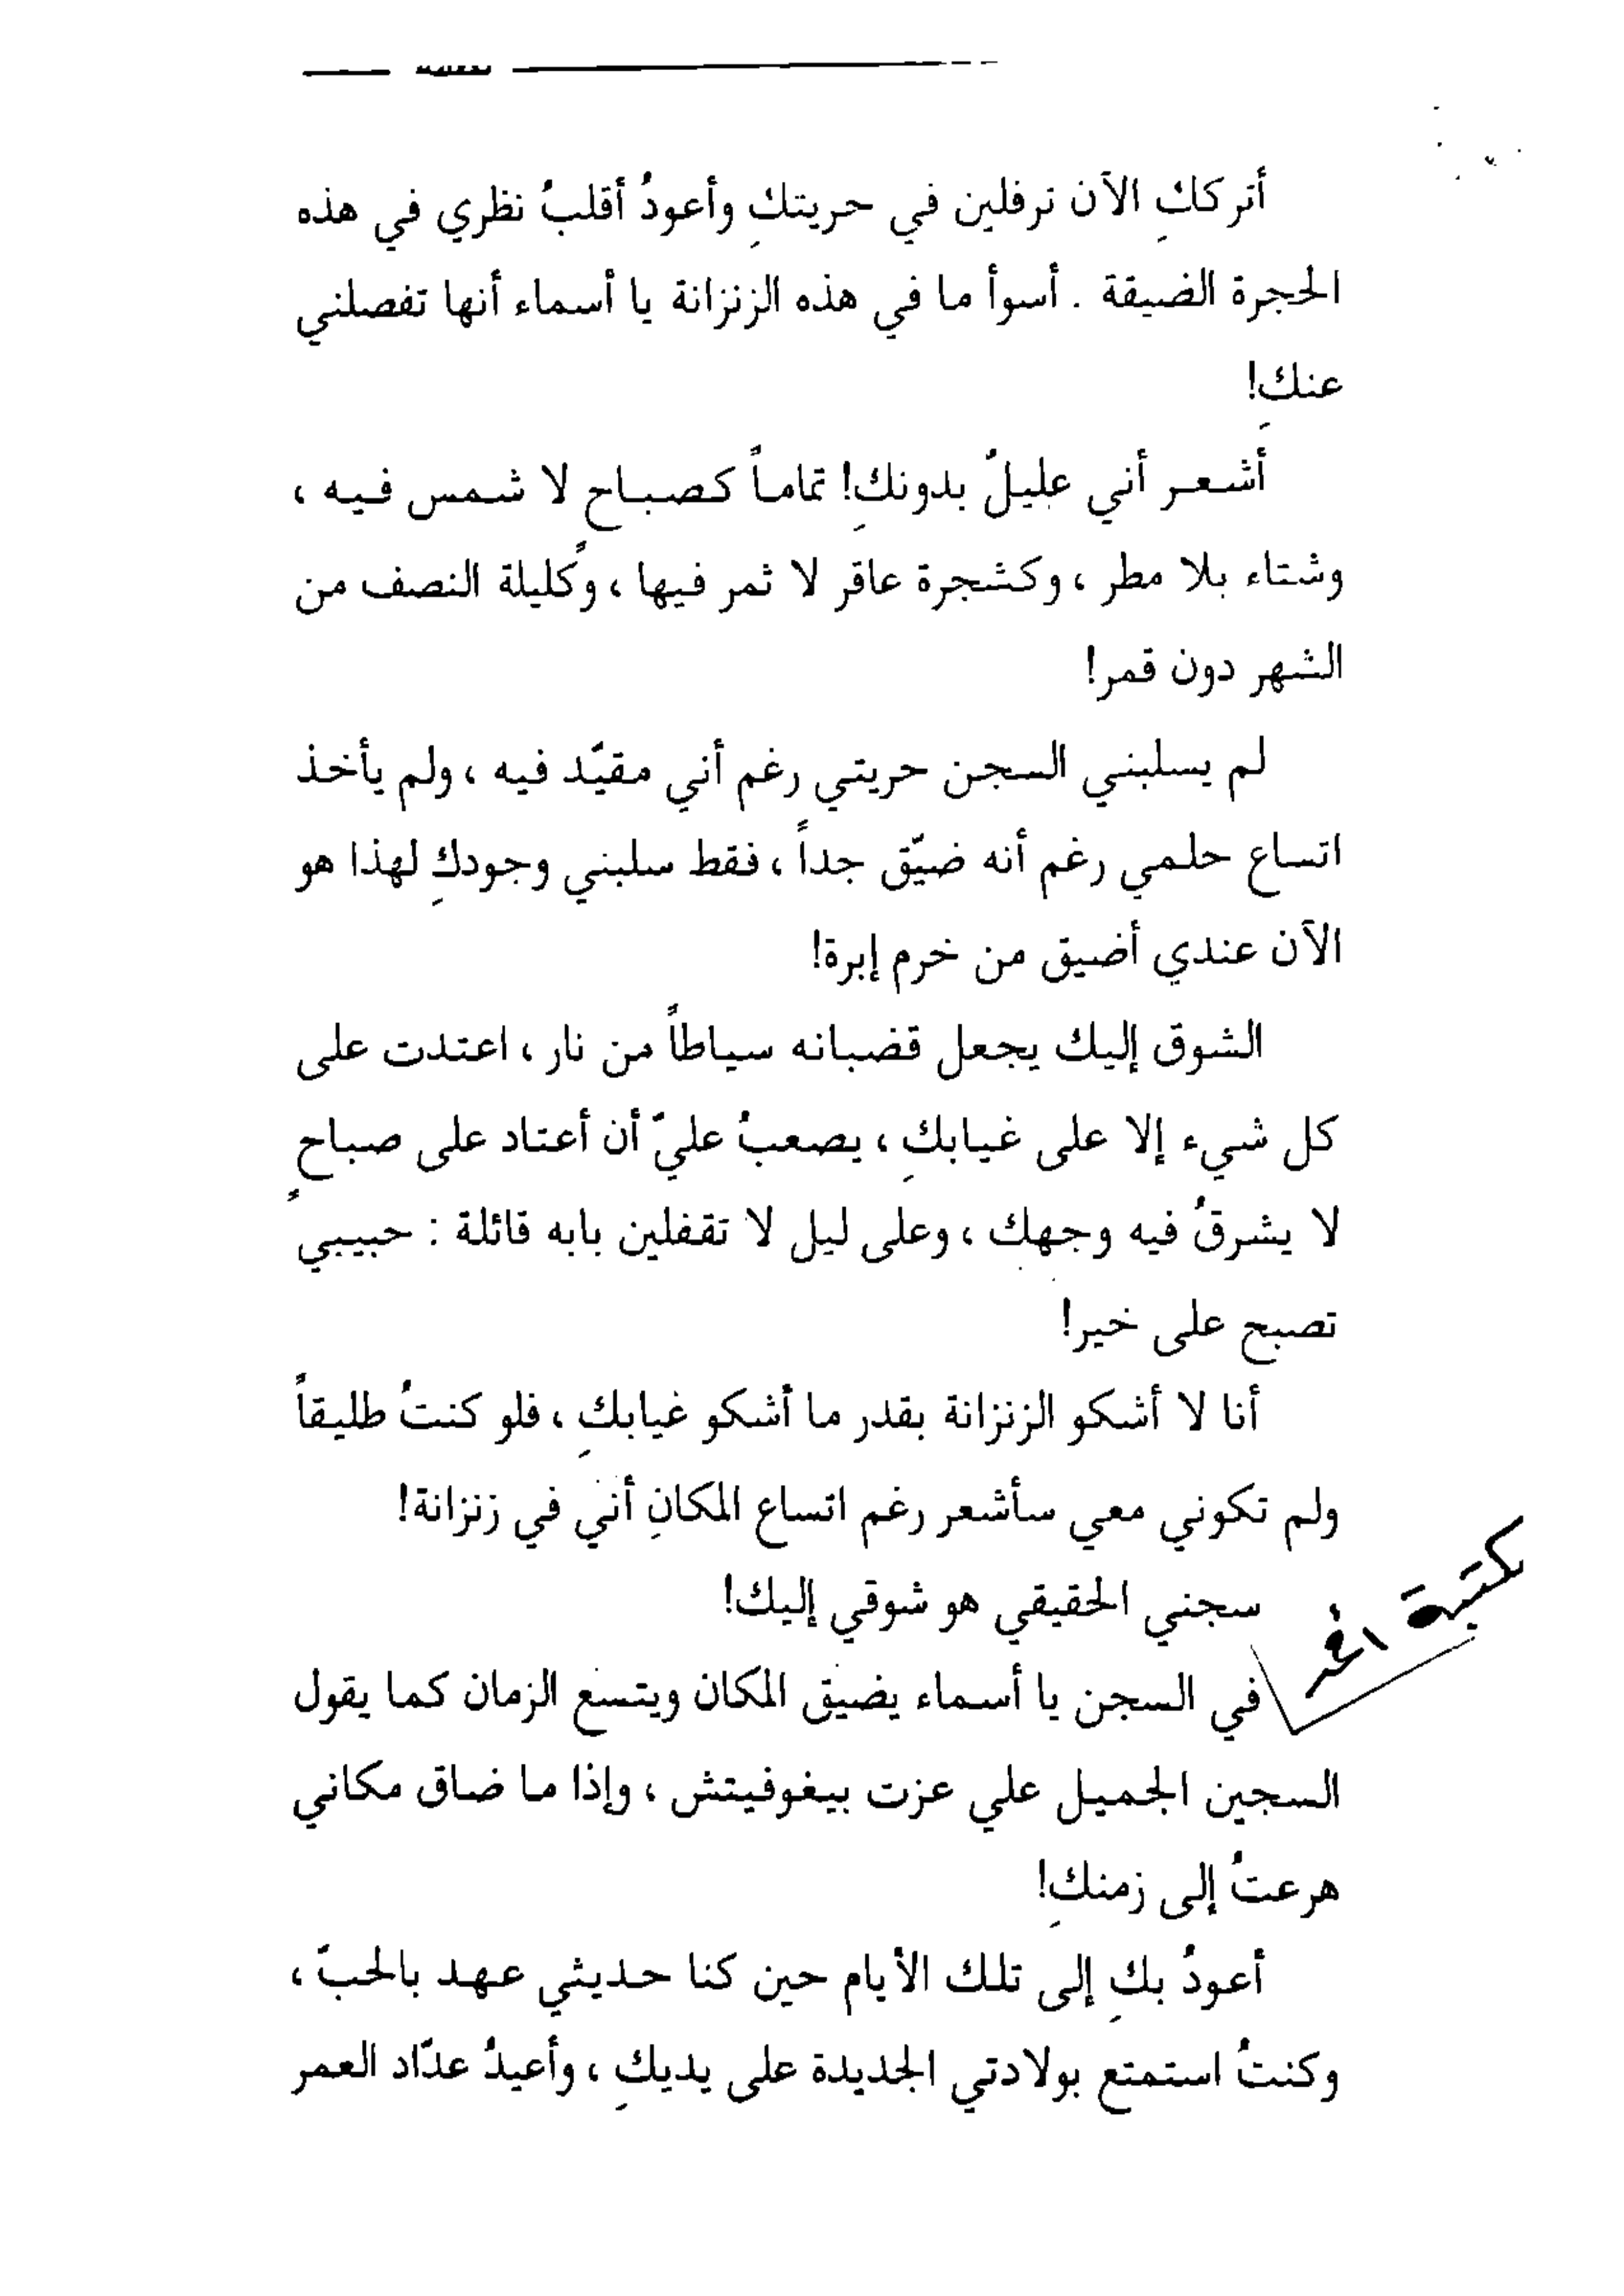 أترككِ الآن ترفلين في حريتكِ وأعودُ أقلبُ نظري في هذه
الحجرة الضيقة . أسوأ ما في هذه الزنزانة يا أسماء أنها تفصلني
عنكِ!
أشعر أني عليلٌ بدونكِ! تماماً كصباحٍ لا شمس فيه ،
وشتاء بلا مطر ، وكشجرة عاقر لا ثمر فيها ، وكليلة النصف من
الشهر دون قمر!
لم يسلبني السجن حريتي رغم أني مقيّد فيه ، ولم يأخذ
اتساع حلمي رغم أنه ضيّق جداً ، فقط سلبني وجودكِ لهذا هو
الآن عندي أضيق من خرم إبرة!
الشوق إليك يجعل قضبانه سياطاً من نار ، اعتدت على
كل شيء إلا على غيابكِ ، يصعبُ عليّ أن أعتاد على صباحٍ
لا يشرقُ فيه وجهك ، وعلى ليل لا تقفلين بابه قائلة : حبيبي
تصبح على خير!
أنا لا أشكو الزنزانة بقدر ما أشكو غيابكِ ، فلو كنتُ طليقاً
ولم تكوني معي سأشعر رغم اتساع المكانِ أني في زنزانة!
سجني الحقيقي هو شوقي إليك!
في السجن يا أسماء يضيق المكان ويتسع الزمان كما يقول
السجين الجميل علي عزت بيغوفيتش ، وإذا ما ضاق مكاني
هرعتُ إلى زمنكِ!
أعودُ بكِ إلى تلك الأيام حين كنا حديثي عهد بالحبّ ،
وكنتُ استمتع بولادتي الجديدة على يديكِ ، وأعيدُ عدّاد العمر